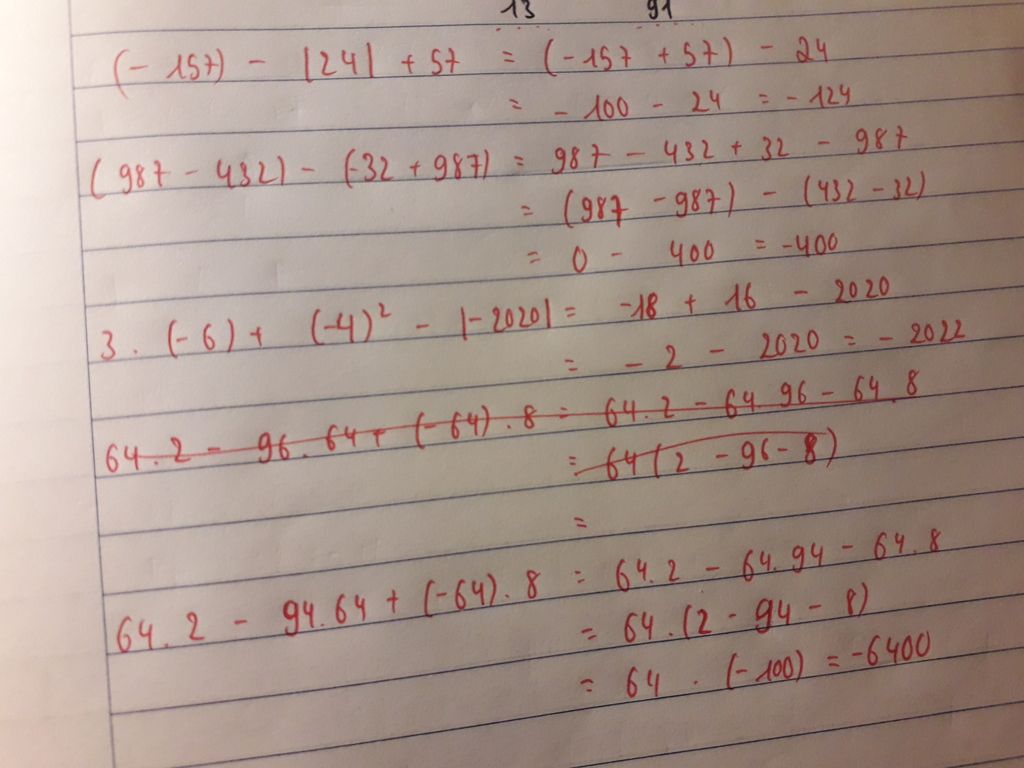 13 91
(- 157) - |24| + 57 = (-157 + 57) - 24
= - 100 - 24 = - 124
(987 - 432) - (-32 + 987) = 987 - 432 + 32 - 987
= (987 - 987) - (432 - 32)
= 0 - 400 = -400
3 . (-6) + (-4)² - |-2020| = -18 + 16 - 2020
= - 2 - 2020 = - 2022
64 . 2 - 96 . 64 + (-64) . 8 = 64 . 2 - 64 96 - 64 . 8
= 64 (2 - 96 - 8)
=
64 . 2 - 94 . 64 + (-64) . 8 = 64 . 2 - 64 . 94 - 64 . 8
= 64 . (2 - 94 - 8)
= 64 . (-100) = -6400